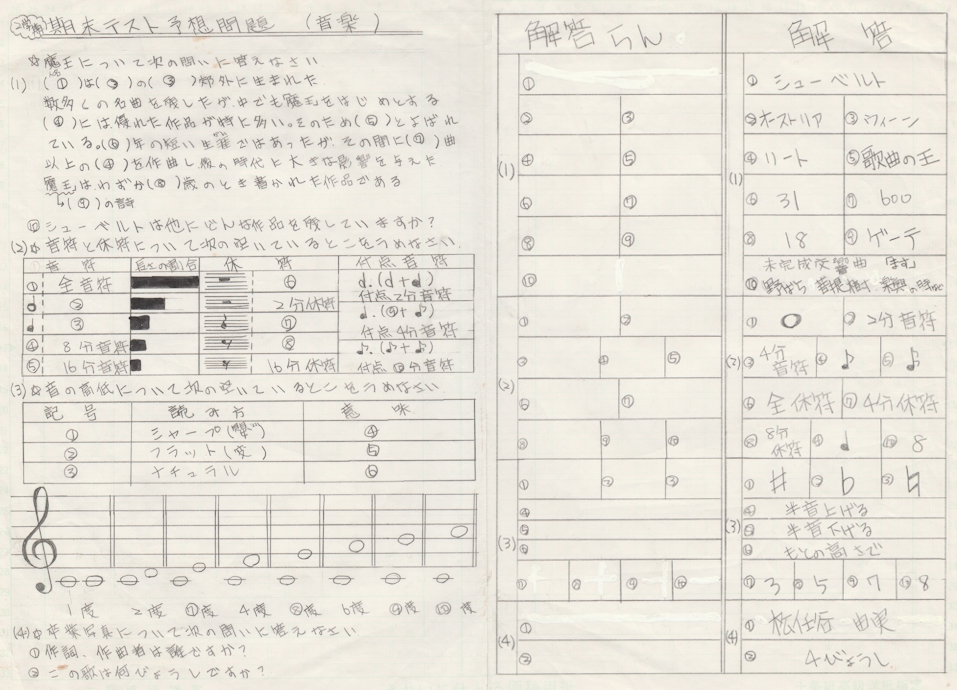 2学期 期末テスト予想問題 (音楽)
☆魔王について次の問いに答えなさい
(1) (①)は(②)の(③)郊外に生まれた
数多くの名曲を残したが、中でも魔王をはじめとする
(④)には優れた作品が特に多い。そのため(⑤)とよばれ
ている。(⑥)年の短い生涯ではあったが、その間に(⑦)曲
以上の(④)を作曲し後の時代に大きな影響を与えた
魔王は、わずか(⑧)歳のとき書かれた作品である
↳(⑨)の詩
⑩シューベルトは他にどんな作品を残していますか?
(2)☆音符と休符について次の空いているとこをうめなさい.
音符 長さの割合 休符 付点音符
① 全音符 ⑥ 付点2分音符
② 2分休符
③ ⑦ 付点4分音符
④ 8分音符 ⑧
⑤ 16分音符 16分休符 付点⑩分音符
(3)☆音の高低について次の空いているとこをうめなさい
記号 読み方 意味
① シャープ ④
② フラット(変) ⑤
③ ナチュラル ⑥
1度 2度 ⑦度 4度 ⑧度 6度 ⑨度 ⑩度
(4)☆卒業写真について次の問いに答えなさい
①作詞、作曲者は誰ですか?
②この歌は何びょうしですか?
解答らん
(1)
①
② ③
④ ⑤
⑥ ⑦
⑧ ⑨
⑩
(2)
① ②
③ ④ ⑤
⑥ ⑦
⑧ ⑨ ⑩
(3)
① ② ③
④
⑤
⑥
⑦ ⑧ ⑨ ⑩
(4)
①
②
解答
(1)
① シューベルト
②オーストリア ③ウィーン
④リート ⑤歌曲の王
⑥ 31 ⑦ 600
⑧ 18 ⑨ ゲーテ
未完成交響曲 ます
⑩野ばら 菩提樹
(2)
① ② 2分音符
③ 4分音符 ④ ♪ ⑤
⑥ 全休符 ⑦ 4分休符
⑧ 8分休符 ⑨ ♩ ⑩ 8
(3)
① ♯ ② ♭ ③ ♮
④ 半音上げる
⑤ 半音下げる
⑥ もとの高さで
⑦ 3 ⑧ 5 ⑨ 7 ⑩ 8
(4)
① 松任谷 由実
② 4びょうし